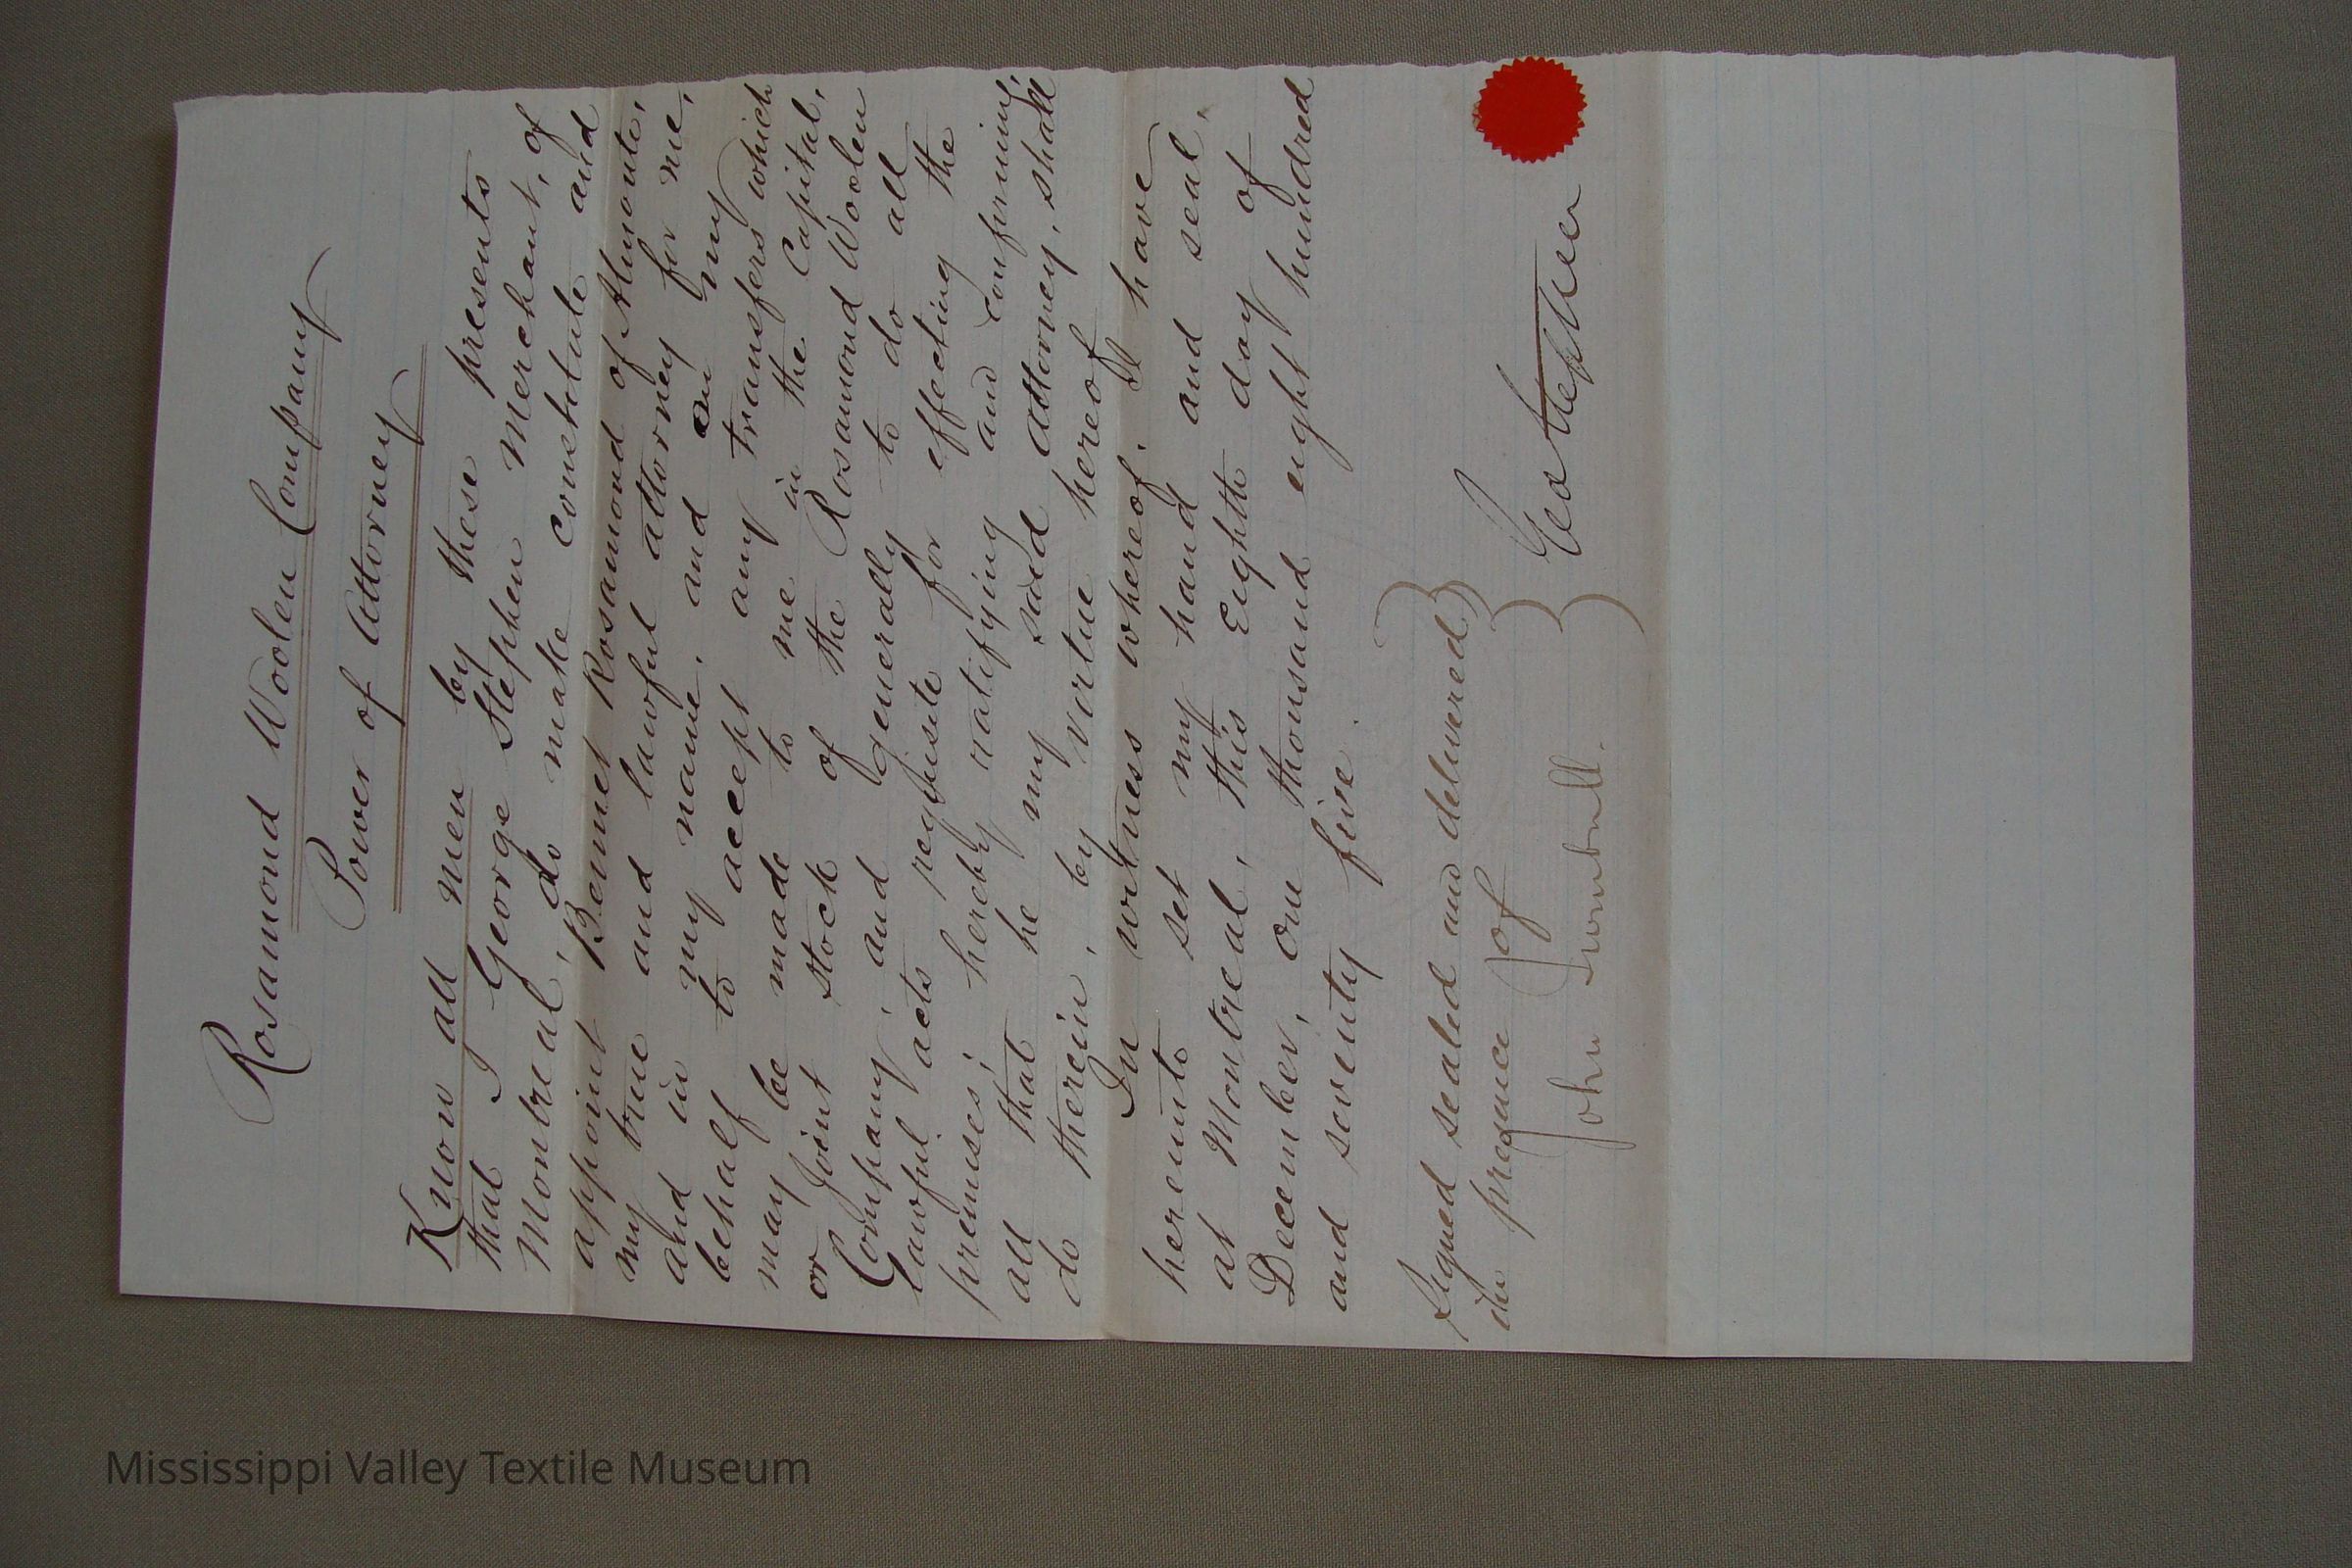 Rosamond Woolen Company
Power of Attorney
Know all men by these presents
that I George Stephen Merchant, of
Montreal, do make constitute and
appoint Bennet Rosamond of Almonte,
my true and lawful attorney for me,
and in my name, and on my
behalf to accept any transfers which
may be made to me in the Capital,
or Joint stock of the Rosamond Woolen
Company, and generally to do all
lawful acts requisite for effecting the
premises; hereby ratifying and confirming,
all that he my said attorney, shall
do therein, by virtue hereof
In witness whereof. I have
hereunto set my hand and seal,
at Montreal, this Eighth day of
December, one thousand eight hundred
and seventy five.
Signed sealed and delivered
in presence of
Geo Stephen
John Turnbull.
Mississippi Valley Textile Museum